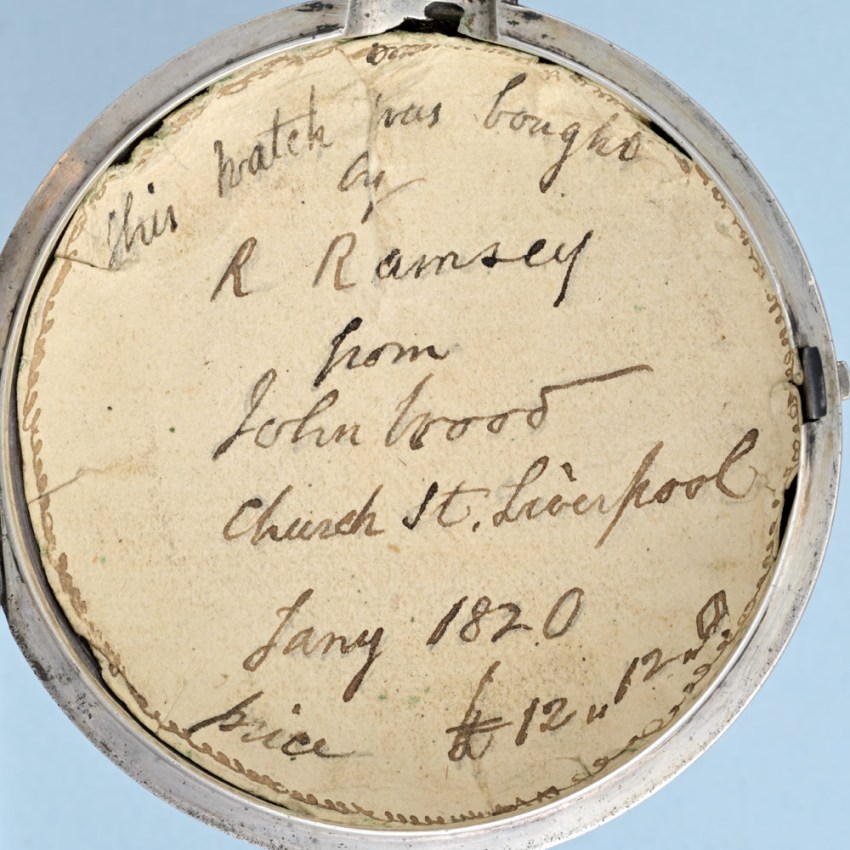 This watch was bought
by
R Ramsey
from
John Wood
Church St. Liverpool
Jany 1820
price £ 12 " 12 " 0